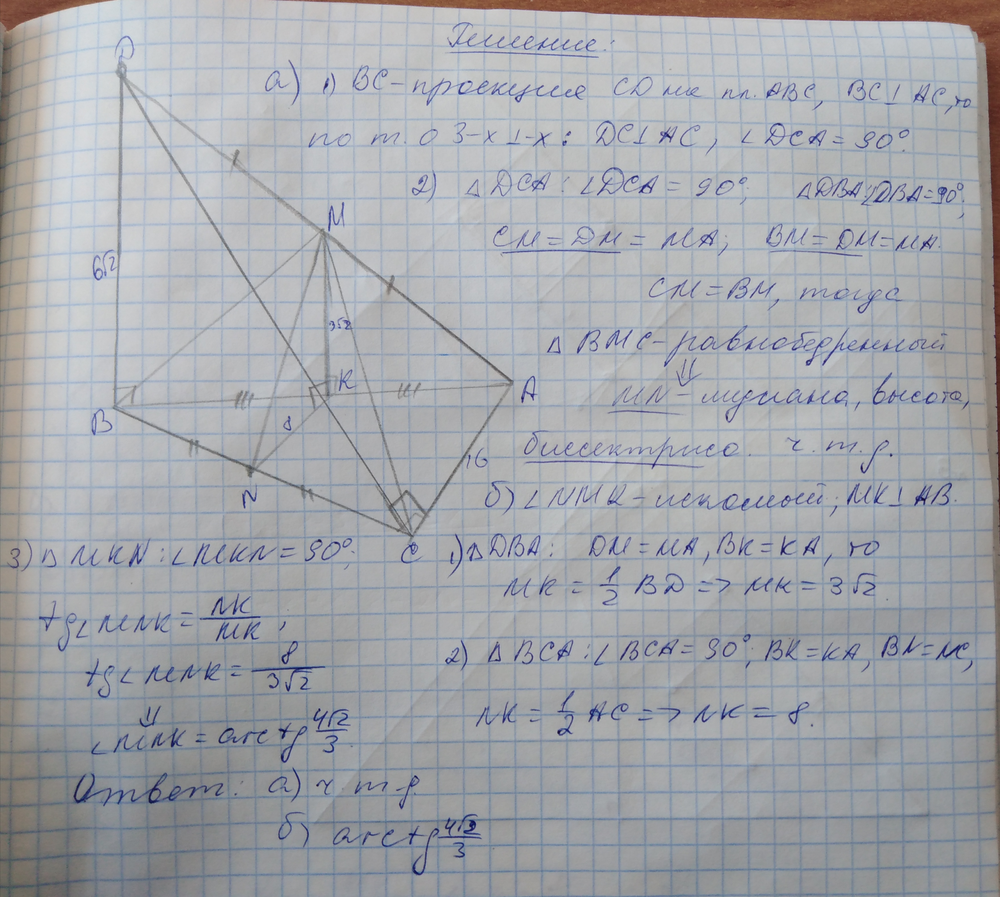 Решение:
а) 1) BC - проекция CD на пл. ABC, BC⊥AC, то
по т. о 3-х ⊥-х: DC⊥AC, ∠DCA = 90°.
2) △DCA: ∠DCA = 90°; △DBA: ∠DBA = 90°;
CM = DM = MA; BM = DM = MA.
CM = BM, тогда
△BMC - равнобедренный
⇓
MN - медиана, высота,
биссектриса. ч.т.д.
б) ∠NMK - искомый; MK⊥AB.
1) △DBA: DM = MA, BK = KA, то
MK = 1/2 BD => MK = 3√2
2) △BCA: ∠BCA = 90°; BK = KA, BN = NC,
NK = 1/2 AC => NK = 8.
3) △MKN: ∠MKN = 90°;
tg∠MNK = NK/MK;
tg∠MNK = 8/(3√2)
⇓
∠MNK = arctg 4√2/3.
Ответ: а) ч.т.д.
б) arctg 4√2/3
D
M
6√2
3√2
K
A
B
8
16
N
C